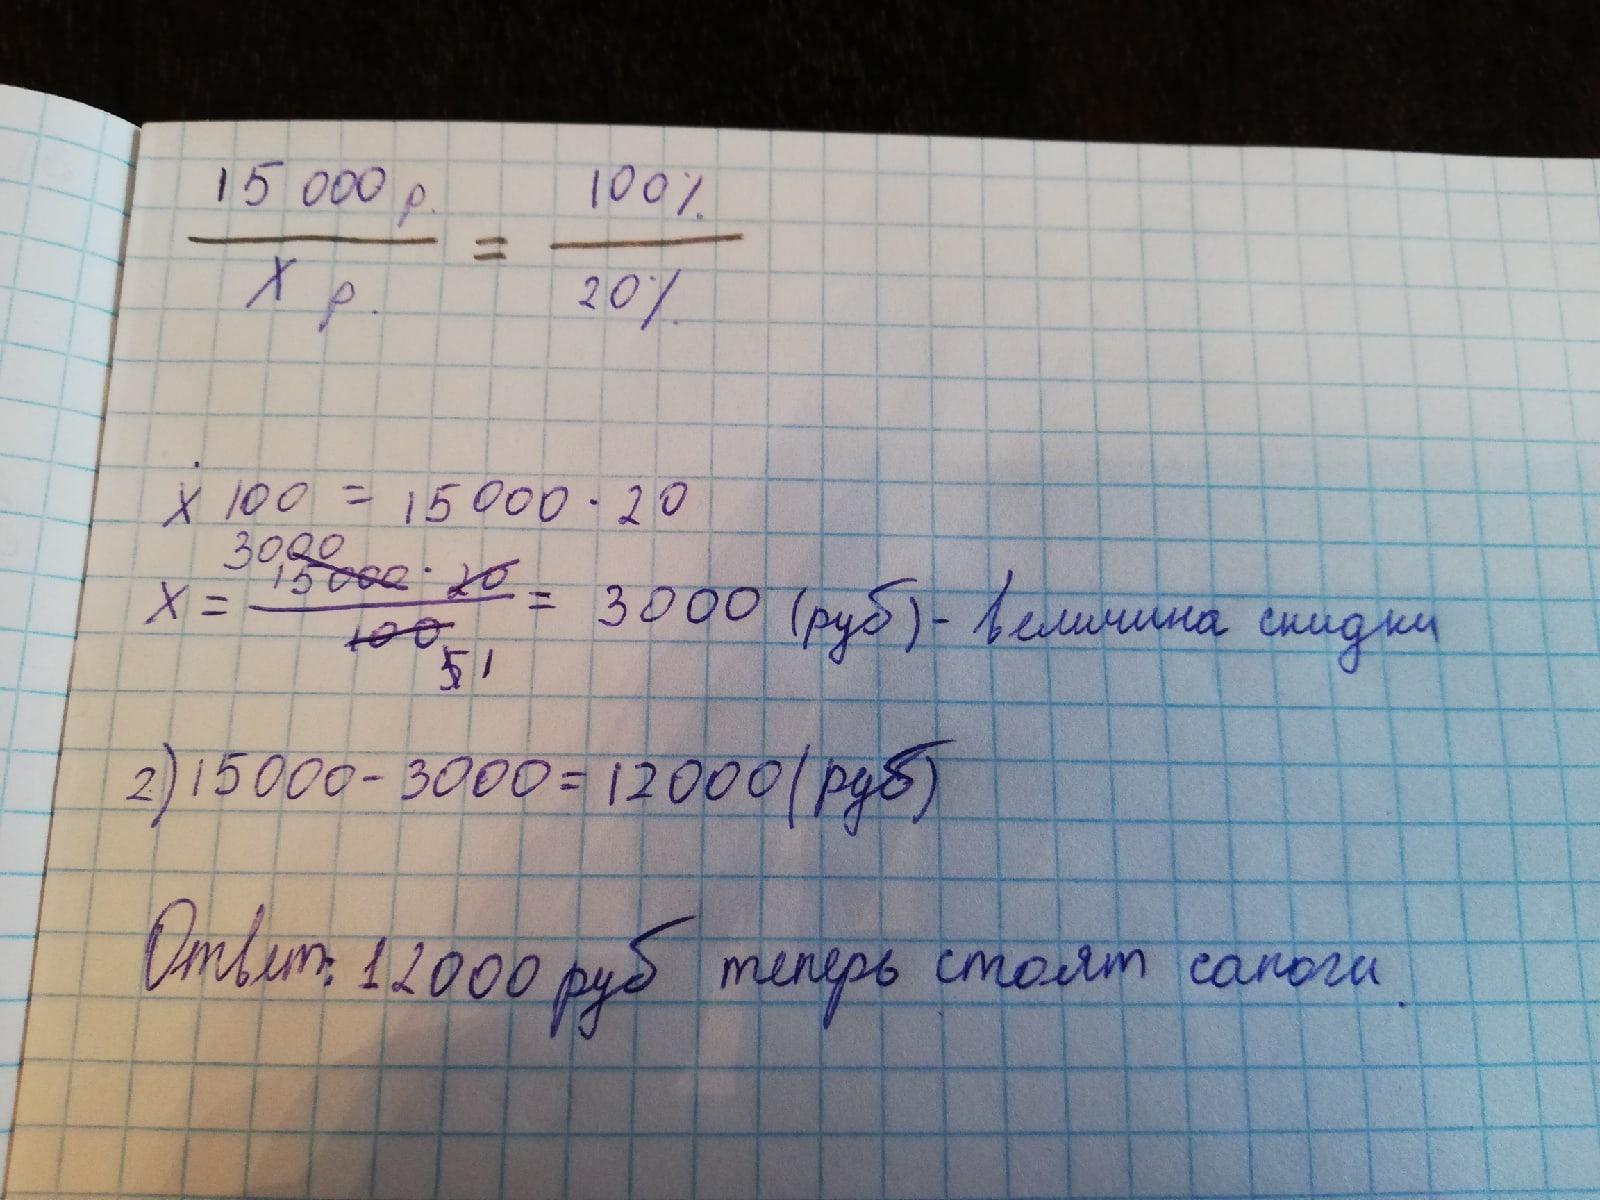 15 000 р. = 100%
х р. 20%
х 100 = 15000 · 20
3000
х = 15000 · 20 = 3000 (руб) - величина скидки
100
5 1
2) 15000 - 3000 = 12000 (руб)
Ответ: 12000 руб теперь стоят сапоги.